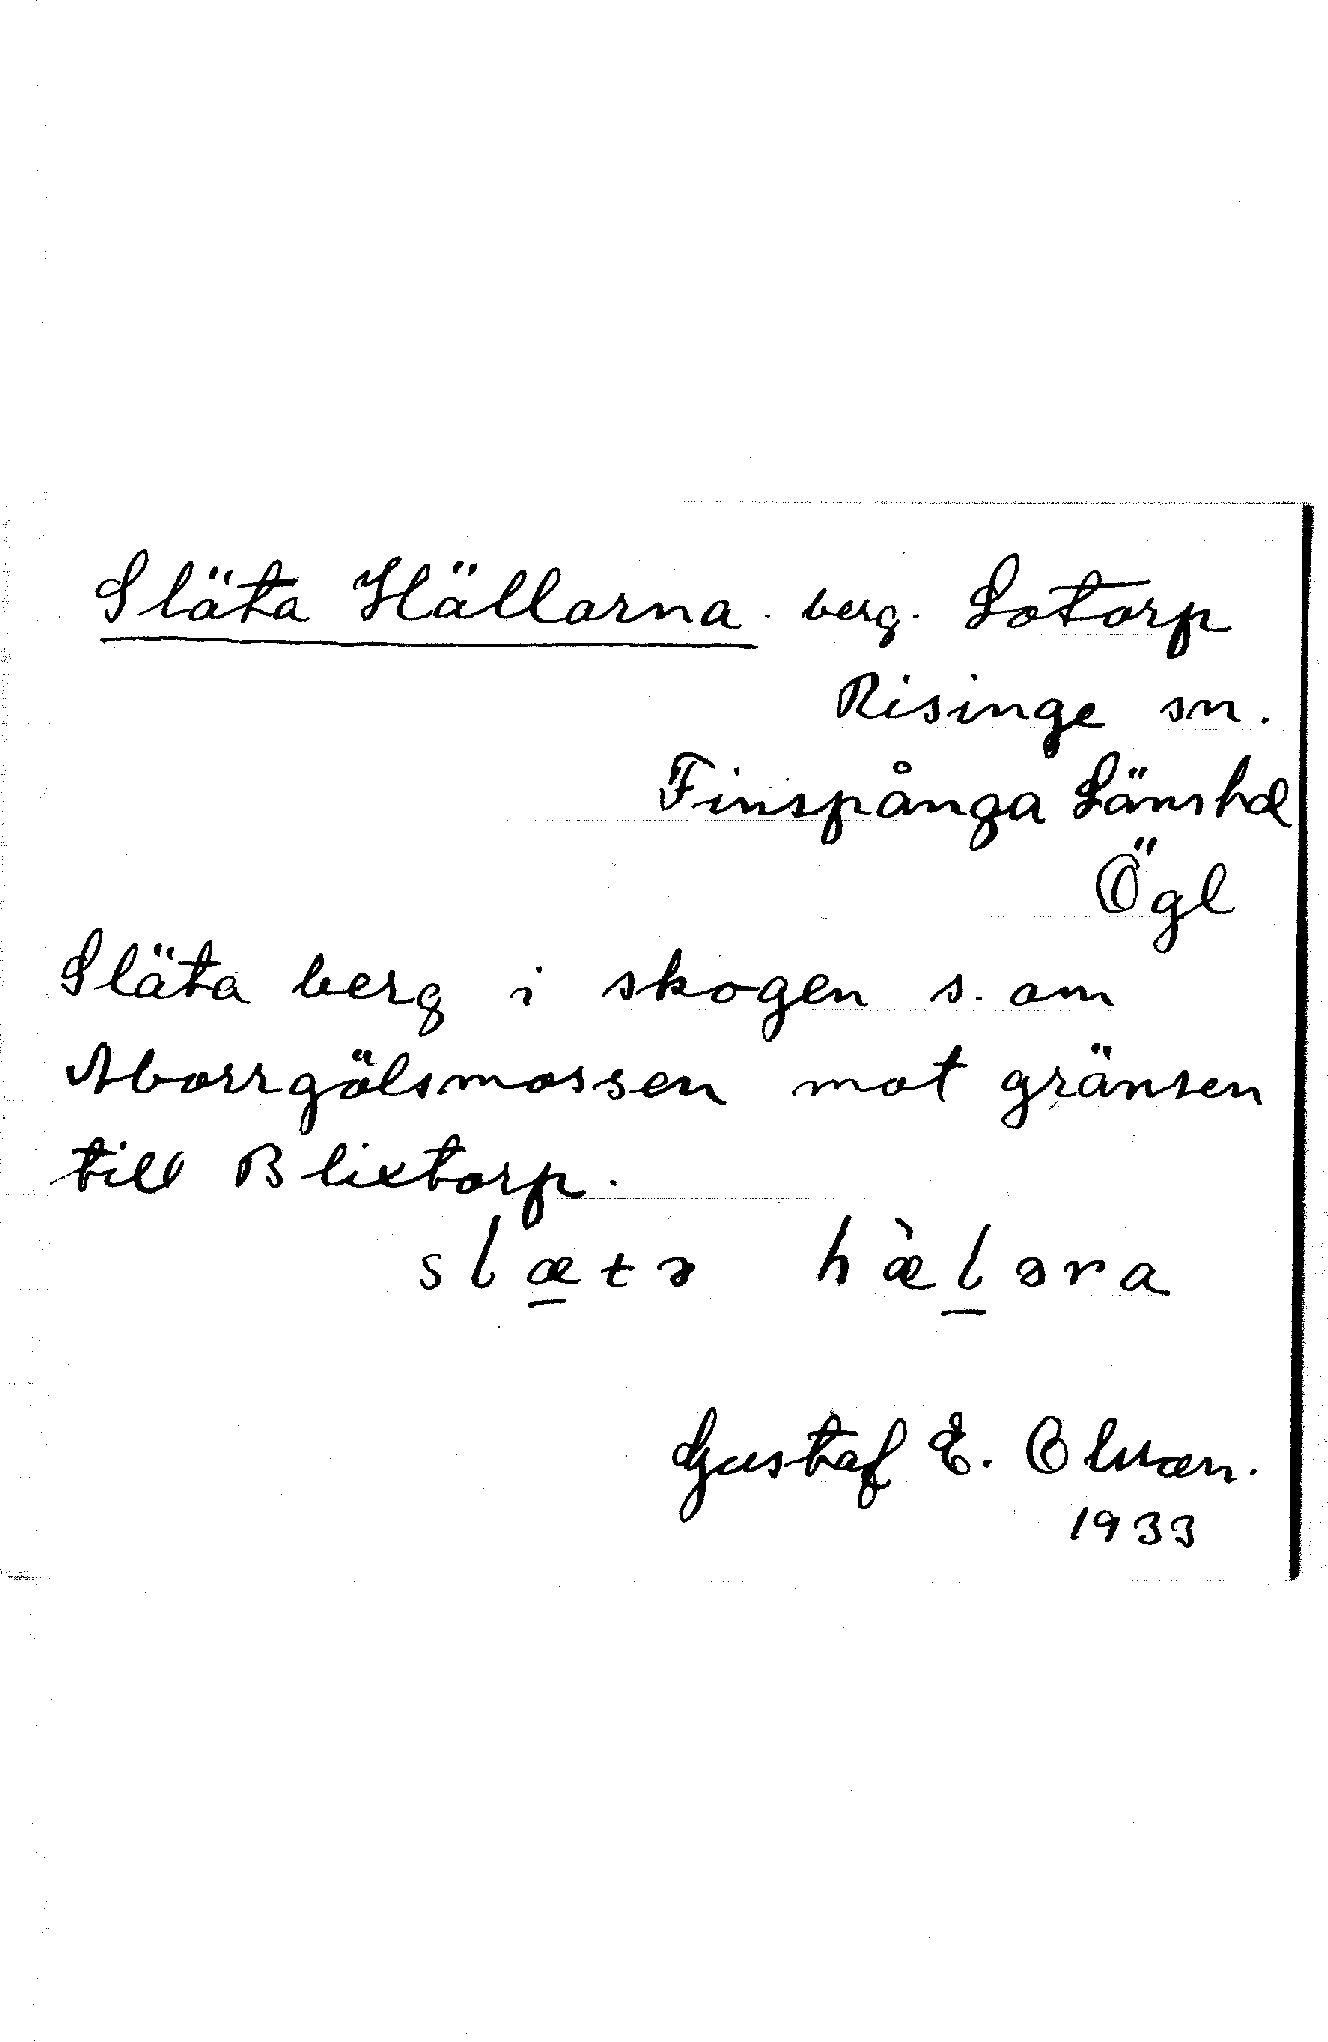 Släta Hällarna. berg. Lotorp
Risinge sn.
Finspånga Länshd
Ögl
Släta berg i skogen s. om
Aborrgölsmossen mot gränsen
till Blixtorp.
slæ̲tə hæ̀l̲əra
Gustaf E. Olsson.
1933